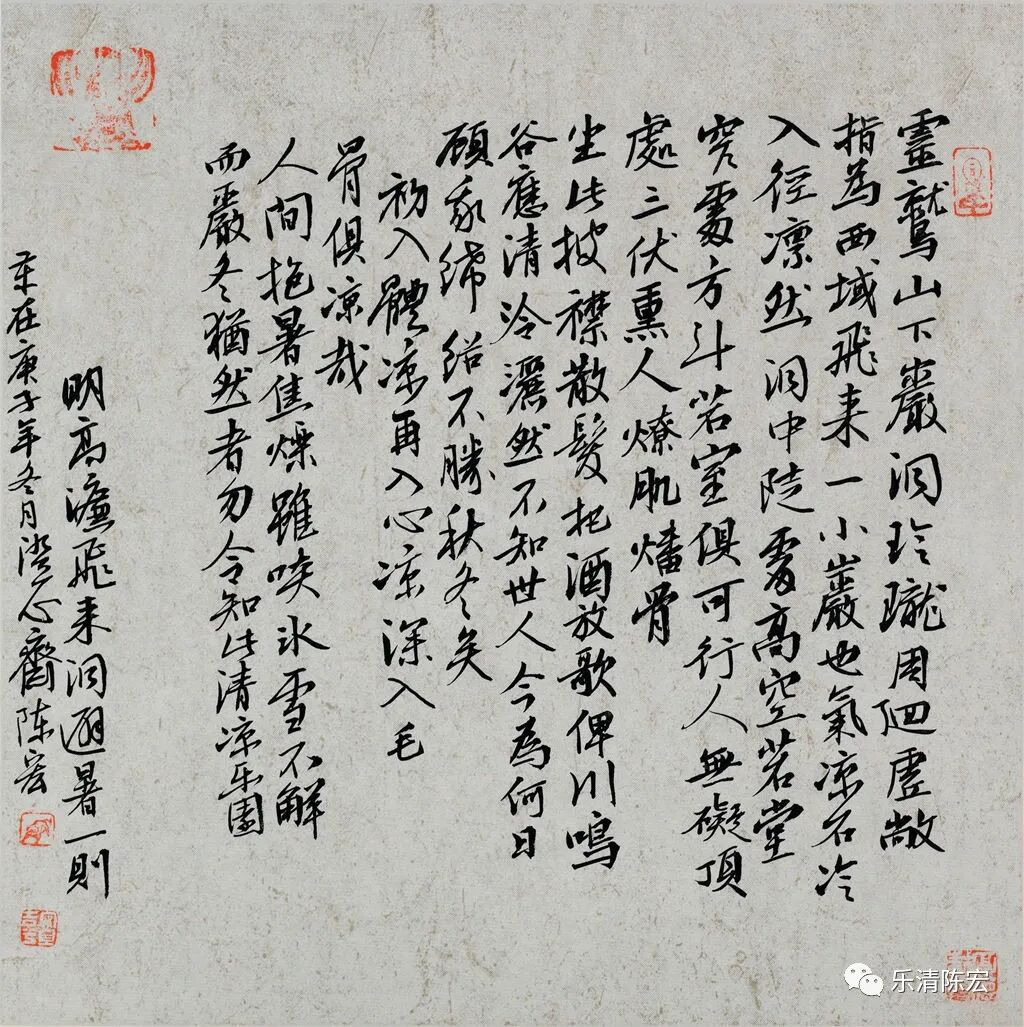 靈鷲山下巖洞玲瓏周迴虛敞
指為西域飛来一小巖也氣凉石冷
入徑凛然洞中陡處高空若堂
窄處方斗若室俱可行人無礙頂
處三伏熏人燎肌燔骨
坐此披襟散髮把酒放歌俾川鳴
谷應清冷灑然不知世人今為何日
顧我絺綌不勝秋冬矣
初入體凉再入心凉深入毛
骨俱凉哉
人间抱暑焦爍雖啖冰雪不解
而嚴冬猶然者勿令知此清凉乐園
明高濂飛来洞避暑一則
庚子年冬月澄心齋陈宏
乐清陈宏